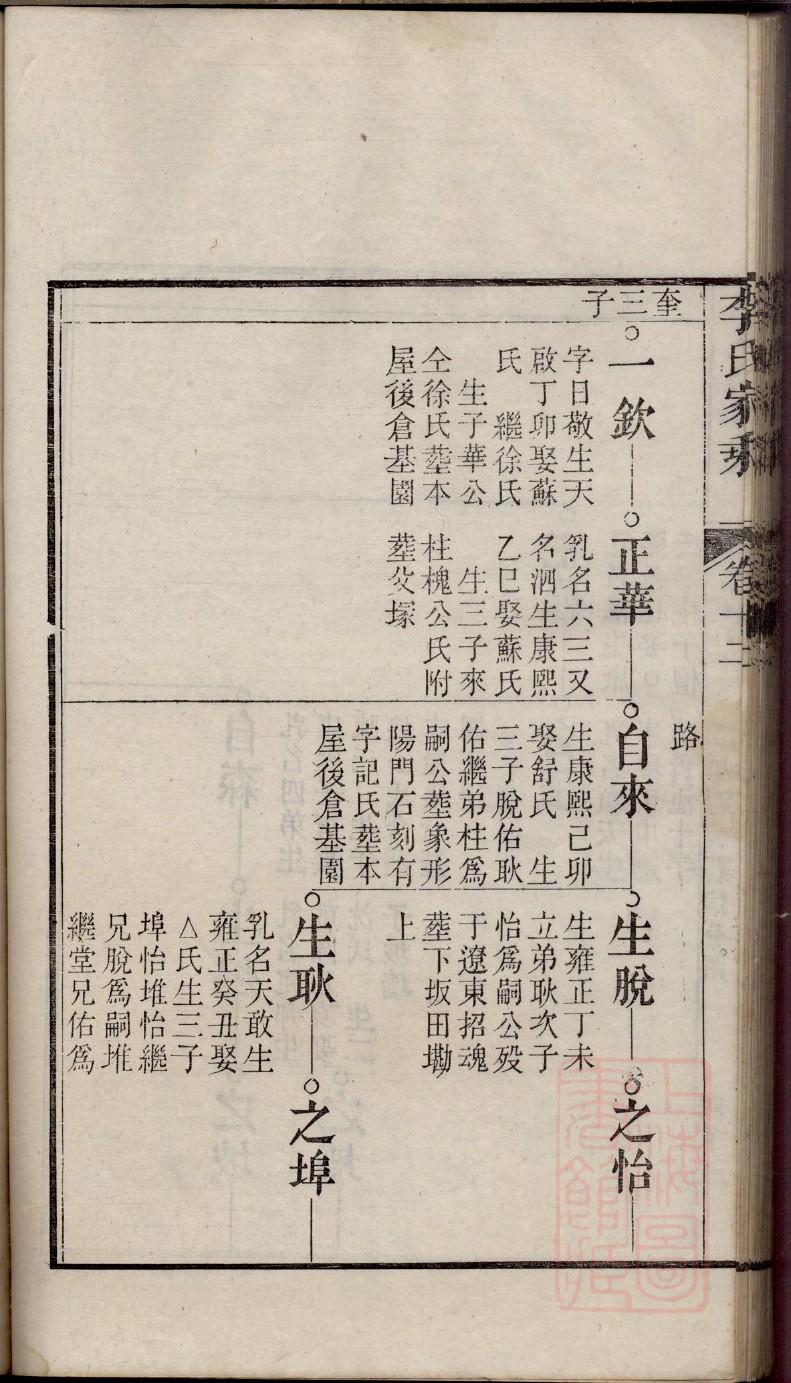 李氏家乘
卷十二
路
奎三子
一欽
字日敬生天
啟丁卯娶蘇
氏 繼徐氏
生子華公
仝徐氏塟本
屋後倉基園
正華
乳名六三又
名泗生康熙
乙巳娶蘇氏
生三子來
柱槐公氏附
塟父塚
自來
生康熙己卯
娶舒氏 生
三子脫佑耿
佑繼弟柱爲
嗣公塟象形
陽門石刻有
字記氏塟本
屋後倉基園
生脫
生雍正丁未
立弟耿次子
怡爲嗣公殁
于遼東招魂
塟下坂田墈
上
之怡
生耿
乳名天敢生
雍正癸丑娶
△氏生三子
埠怡堆怡繼
兄脫爲嗣堆
繼堂兄佑爲
之埠